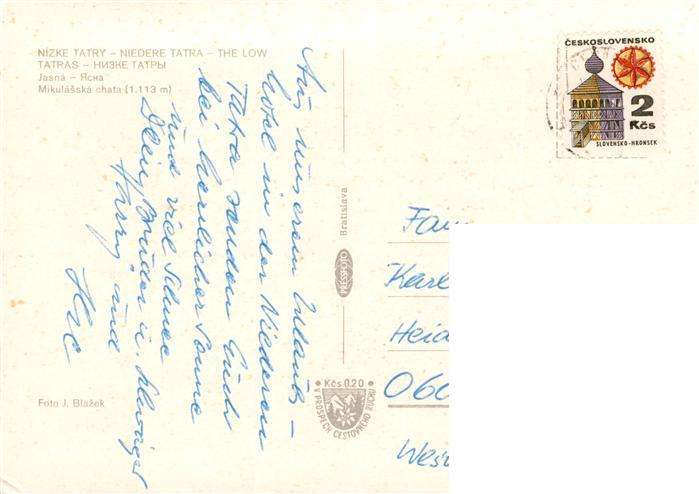 NÍZKE TATRY – NIEDERE TATRA – THE LOW
TATRAS – НИЗКЕ ТАТРЫ
Jasná – Ясна
Mikulášska chata (1.113 m)
Aus unserem Urlaubs-
hotel in der Niederen
Tatra senden Euch
bei herrlicher Sonne
und viel Schnee
Dein Bruder u. Schwager
Harry und
Foto J. Blažek
Bratislava
PRESSFOTO
Kčs 0.20
V PROSPECH CESTOVNÉHO RUCHU
ČESKOSLOVENSKO
2
Kčs
SLOVENSKO-HRONSEK
Fam
Karl
Heid
060
West